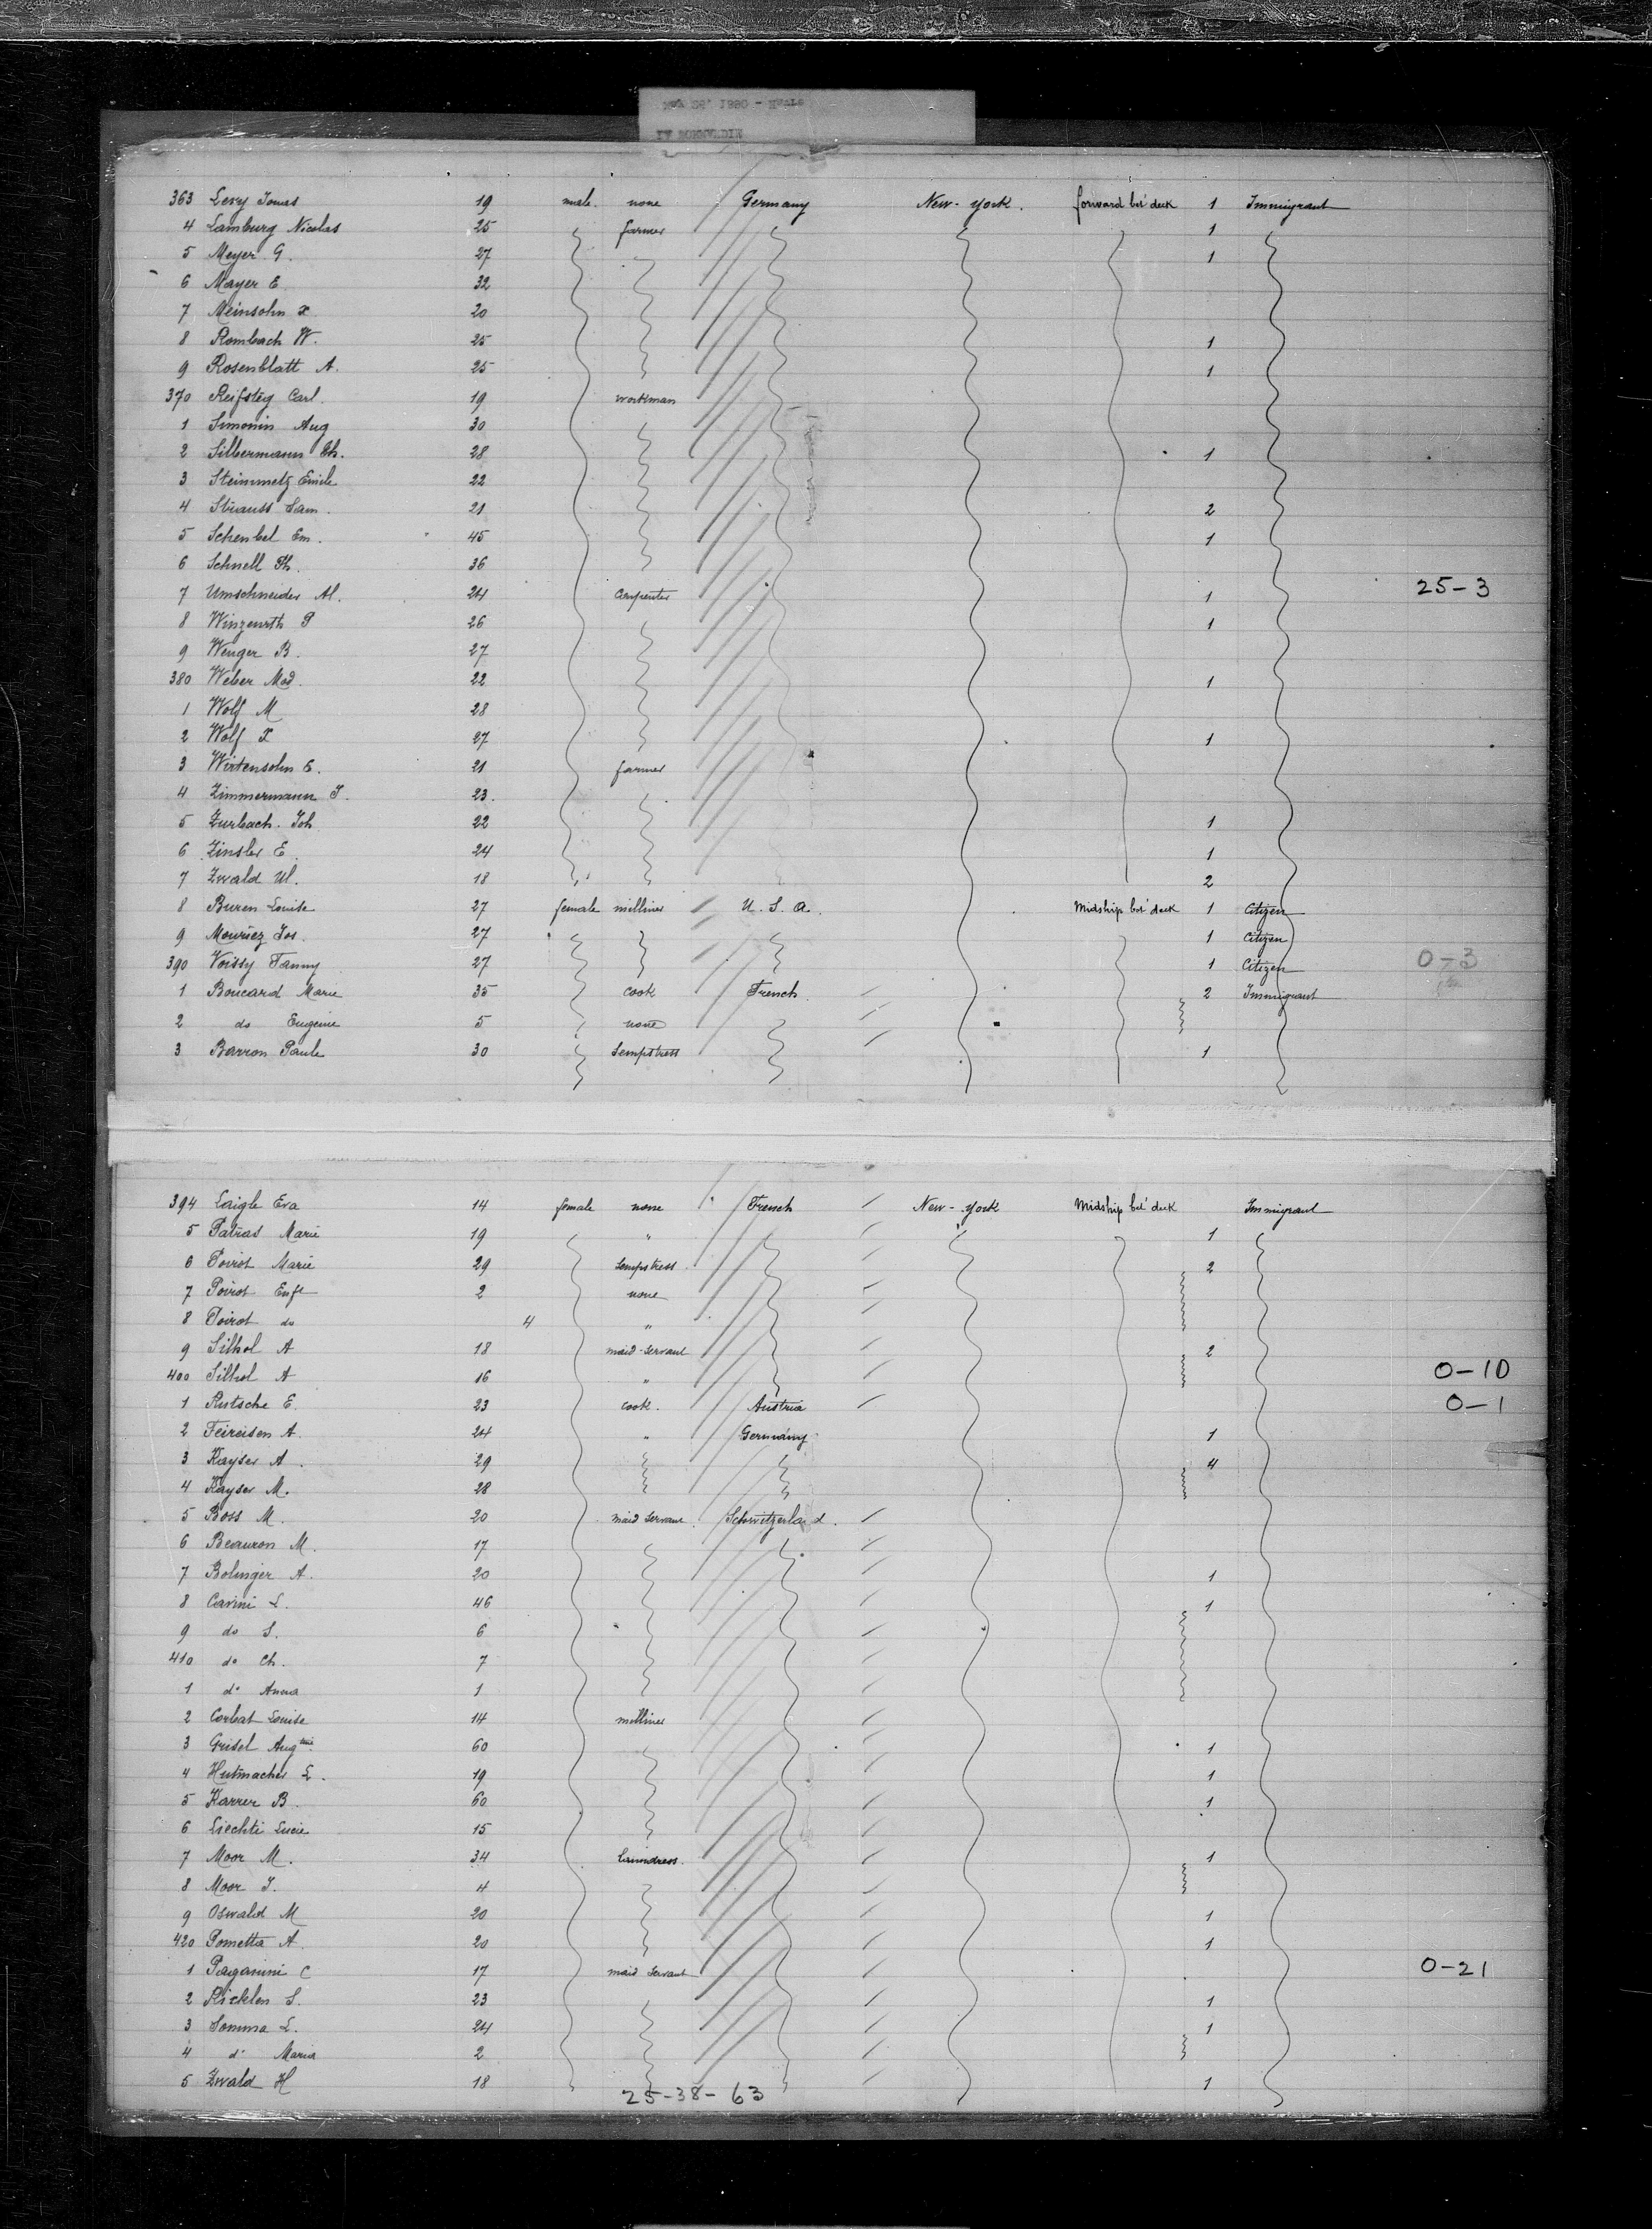 363 Levy Jonas 19 male. none Germany New-York. forward bet' deck 1 Immigrant
4 Lamburg Nicolas 25 farmer 1
5 Meyer G. 27 1
6 Mayer E. 32
7 Meinsohn X 20
8 Rombach W. 25 1
9 Rosenblatt A. 25 1
370 Reifsteg Carl. 19 workman
1 Simonin Aug 30
2 Silbermann 28 1
3 Steinmetz Emile 22
4 Strauss Sam. 21 2
5 Schenbel Em. 45 1
6 Schnell Th. 36
7 Umschneider Al. 24 Carpenter 1 25-3
8 Winzenrth P 26 1
9 Wenger B. 27
380 Weber Mad. 22 1
1 Wolf M 28
2 Wolf X 27 1
3 Wirtensohn E. 21 farmer
4 Zimmermann J. 23.
5 Zurbach. Joh 22 1
6 Zinsler E. 24 1
7 Zwald Ul. 18 2
8 Buren Louise 27 female milliner U. S. a. Midship bet' deck 1 Citizen
9 Mouriez Jos. 27 1 Citizen
390 Voissy Fanny 27 1 Citizen 0-3
1 Boucard Marie 35 cook French. 2 Immigrant
2 do Eugenie 5 none
3 Barron Paule 30 Sempstress 1
394 Laigle Eva 14 female none French New-York Midship bet' deck Immigrant
5 Patras Marie 19 " 1
6 Poirot Marie 29 Sempstress 2
7 Poirot 2 none
8 Poirot do 4 "
9 Silhol A 18 maid-servant 2
400 Silhol A 16 " 0-10
1 Rutsche E. 23 cook. Austria 0-1
2 Feireisen A. 24 " Germany 1
3 Kayser A. 29 4
4 Kayser M. 28
5 Boss M. 20 maid servant. Schwitzerland.
6 Beauron M. 17
7 Bolinger A. 20 1
8 Carini L. 46 1
9 do S. 6
410 do Ch. 7
1 do Anna 1
2 Corbat Louise 14 milliner
3 Grisel Aug 60 1
4 Hutmacher L. 19 1
5 Karrer B. 60 1
6 Liechti Lucie 15
7 Moor M. 34 laundress. 1
8 Moor J. 4
9 Oswald M 20 1
420 Pometta A. 20 1
1 Paganini C 17 maid servant 0-21
2 Ricklen S. 23 1
3 Somma L. 24 1
4 do Maria 2
5 Zwald H 18 1
25-38-63